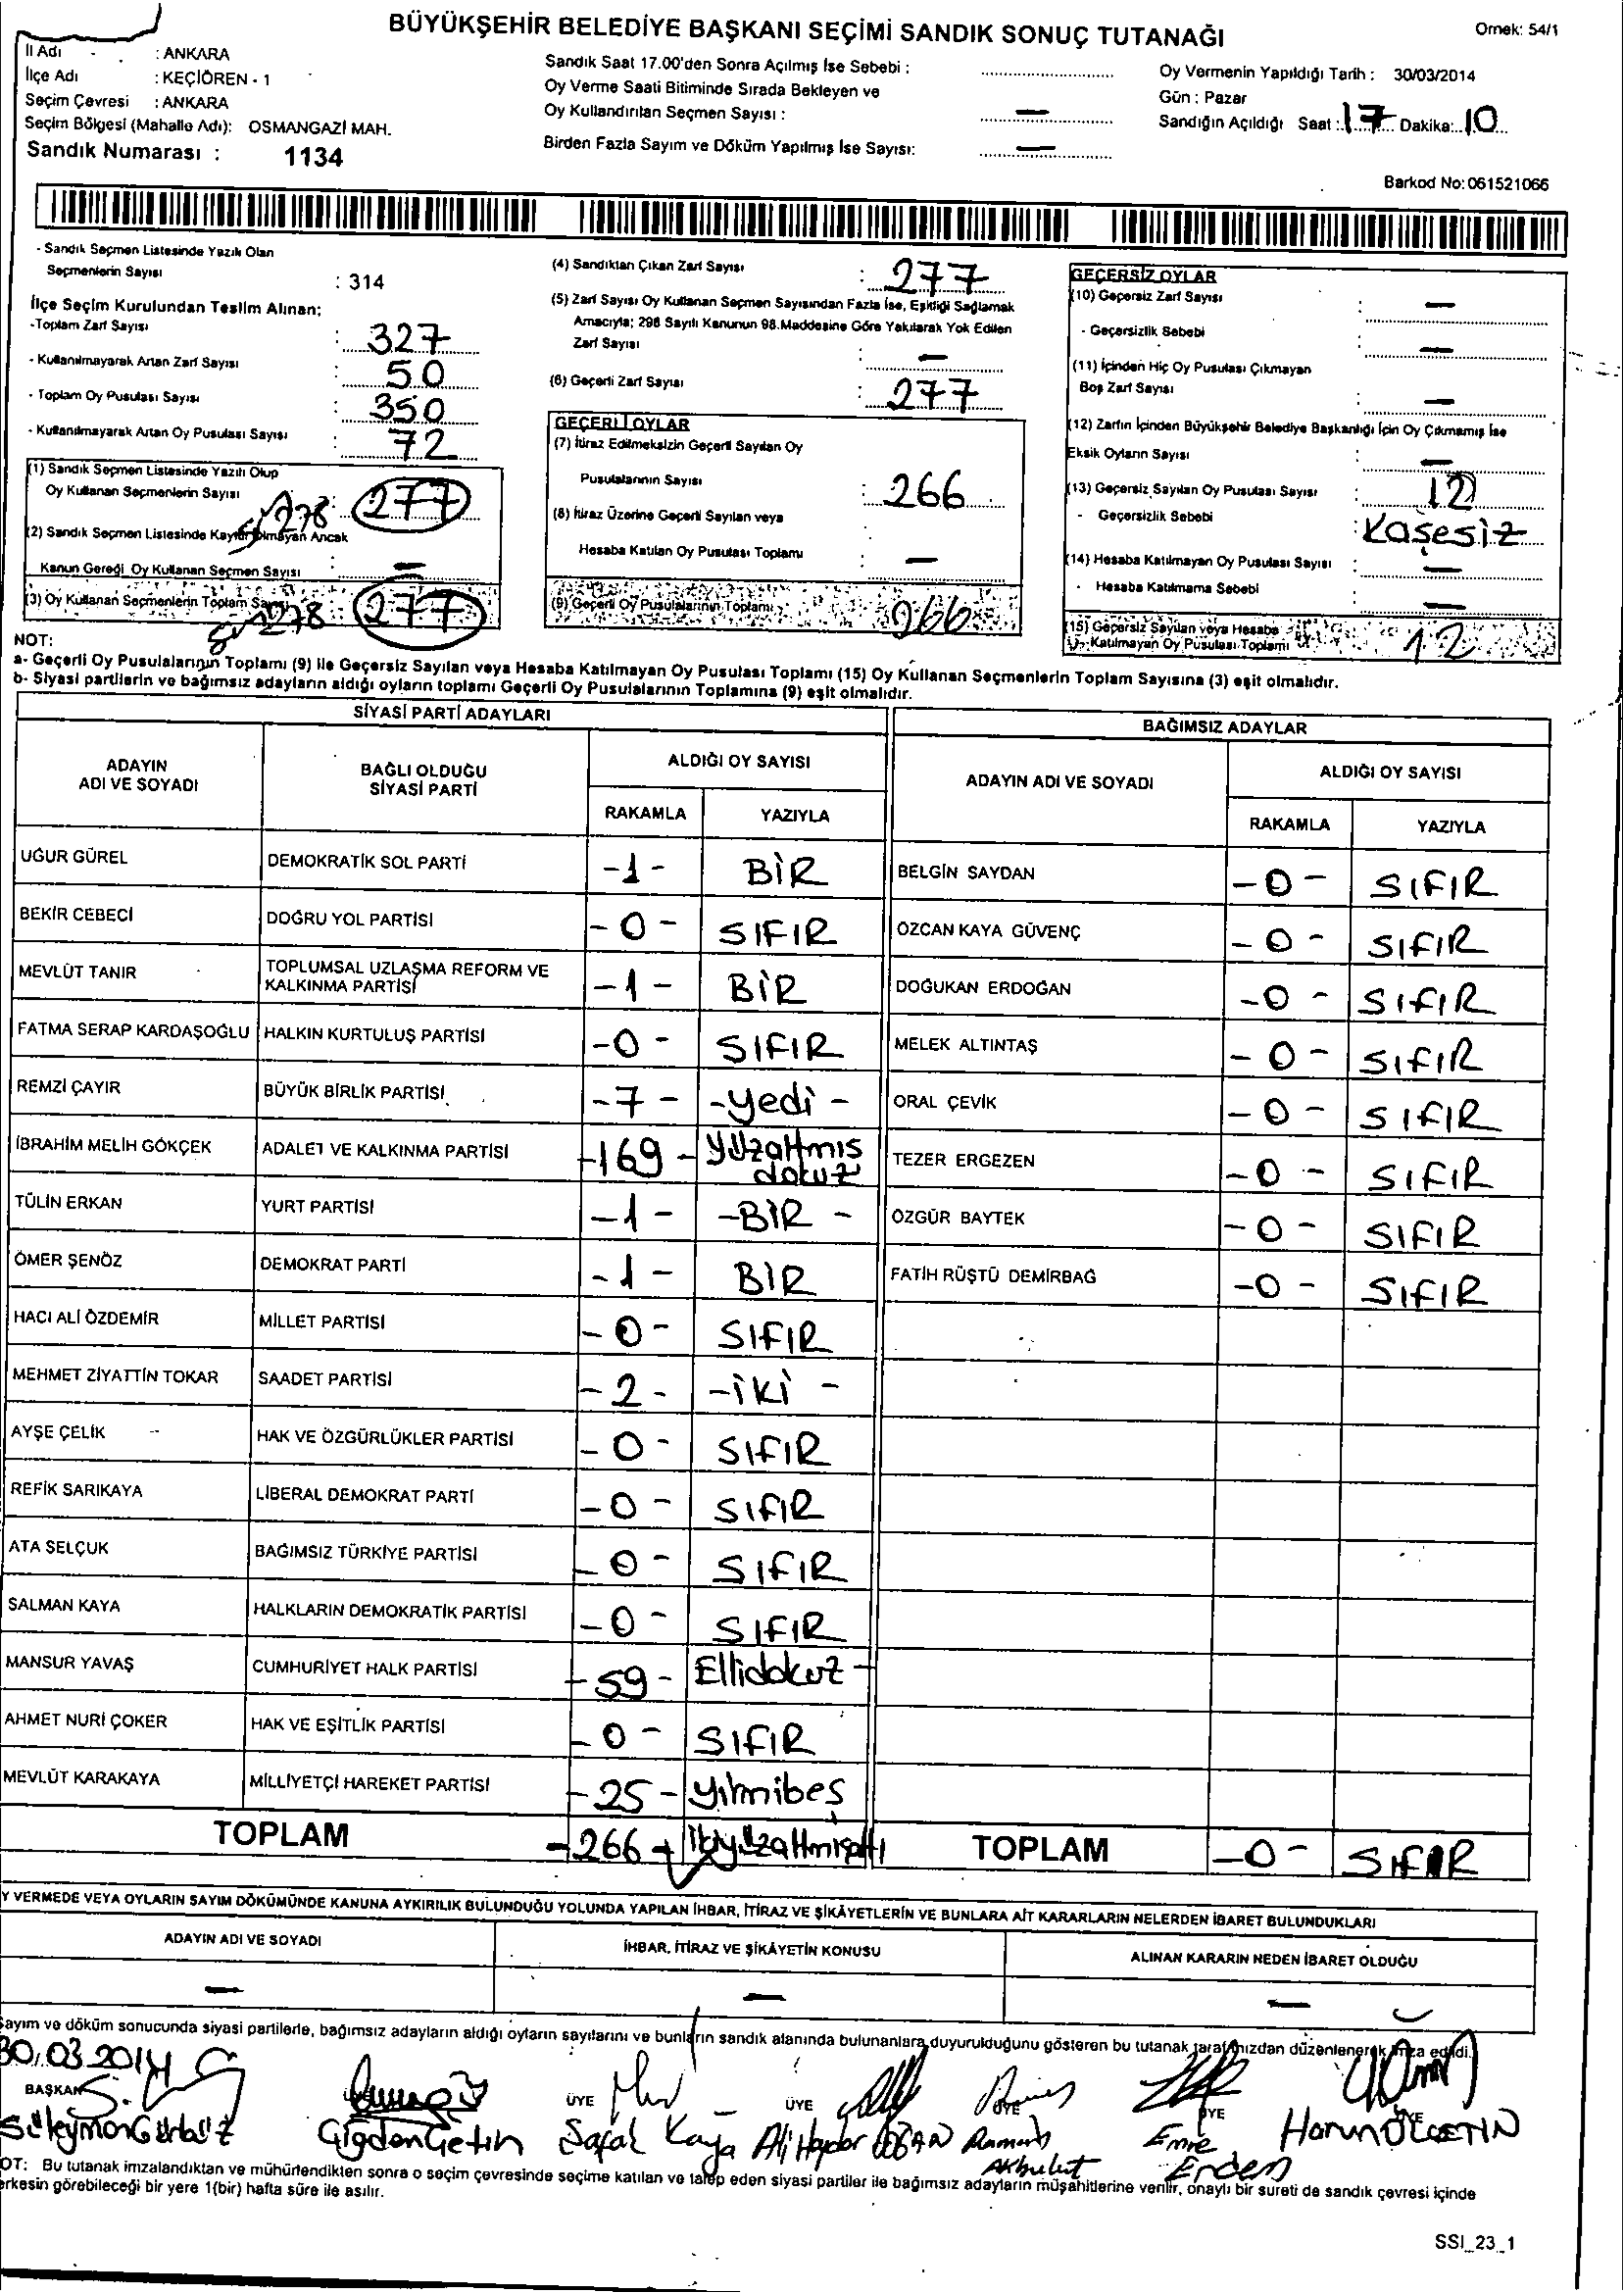 BÜYÜKŞEHİR BELEDİYE BAŞKANI SEÇİMİ SANDIK SONUÇ TUTANAĞI
Örnek: 54/1
İl Adı : ANKARA
İlçe Adı : KEÇİÖREN - 1
Seçim Çevresi : ANKARA
Seçim Bölgesi (Mahalle Adı): OSMANGAZİ MAH.
Sandık Numarası : 1134
Sandık Saat 17.00'den Sonra Açılmış İse Sebebi :
Oy Verme Saati Bitiminde Sırada Bekleyen ve
Oy Kullandırılan Seçmen Sayısı : —
Birden Fazla Sayım ve Döküm Yapılmış İse Sayısı: —
Oy Vermenin Yapıldığı Tarih : 30/03/2014
Gün : Pazar
Sandığın Açıldığı Saat : 17 Dakika: 10
Barkod No: 061521066
- Sandık Seçmen Listesinde Yazılı Olan
Seçmenlerin Sayısı : 314
İlçe Seçim Kurulundan Teslim Alınan:
-Toplam Zarf Sayısı : 327
- Kullanılmayarak Artan Zarf Sayısı : 50
- Toplam Oy Pusulası Sayısı : 350
- Kullanılmayarak Artan Oy Pusulası Sayısı : 72
(1) Sandık Seçmen Listesinde Yazılı Olup
Oy Kullanan Seçmenlerin Sayısı 278 : 277
(2) Sandık Seçmen Listesinde Kayıtlı Olmayan Ancak
Kanun Gereği Oy Kullanan Seçmen Sayısı : —
(3) Oy Kullanan Seçmenlerin Toplam Sayısı 278 : 277
(4) Sandıktan Çıkan Zarf Sayısı : 277
(5) Zarf Sayısı Oy Kullanan Seçmen Sayısından Fazla İse, Eşitliği Sağlamak
Amacıyla; 298 Sayılı Kanunun 98.Maddesine Göre Yakılarak Yok Edilen
Zarf Sayısı : —
(6) Geçerli Zarf Sayısı : 277
GEÇERLİ OYLAR
(7) İtiraz Edilmeksizin Geçerli Sayılan Oy
Pusulalarının Sayısı : 266
(8) İtiraz Üzerine Geçerli Sayılan veya
Hesaba Katılan Oy Pusulası Toplamı : —
(9) Geçerli Oy Pusulalarının Toplamı : 266
GEÇERSİZ OYLAR
(10) Geçersiz Zarf Sayısı : —
- Geçersizlik Sebebi : —
(11) İçinden Hiç Oy Pusulası Çıkmayan
Boş Zarf Sayısı : —
(12) Zarfın İçinden Büyükşehir Belediye Başkanlığı İçin Oy Çıkmamış İse
Eksik Oyların Sayısı : —
(13) Geçersiz Sayılan Oy Pusulası Sayısı : 12
- Geçersizlik Sebebi : Kaşesiz
(14) Hesaba Katılmayan Oy Pusulası Sayısı : —
- Hesaba Katılmama Sebebi : —
(15) Geçersiz Sayılan veya Hesaba
Katılmayan Oy Pusulası Toplamı : 12
NOT:
a- Geçerli Oy Pusulalarının Toplamı (9) ile Geçersiz Sayılan veya Hesaba Katılmayan Oy Pusulası Toplamı (15) Oy Kullanan Seçmenlerin Toplam Sayısına (3) eşit olmalıdır.
b- Siyasi partilerin ve bağımsız adayların aldığı oyların toplamı Geçerli Oy Pusulalarının Toplamına (9) eşit olmalıdır.
SİYASİ PARTİ ADAYLARI
ADAYIN ADI VE SOYADI BAĞLI OLDUĞU SİYASİ PARTİ ALDIĞI OY SAYISI
RAKAMLA YAZIYLA
UĞUR GÜREL DEMOKRATİK SOL PARTİ -1- BİR
BEKİR CEBECİ DOĞRU YOL PARTİSİ -0- SIFIR
MEVLÜT TANIR TOPLUMSAL UZLAŞMA REFORM VE KALKINMA PARTİSİ -1- BİR
FATMA SERAP KARDAŞOĞLU HALKIN KURTULUŞ PARTİSİ -0- SIFIR
REMZİ ÇAYIR BÜYÜK BİRLİK PARTİSİ -7- -yedi-
İBRAHİM MELİH GÖKÇEK ADALET VE KALKINMA PARTİSİ -169- yüzaltmış dokuz
TÜLİN ERKAN YURT PARTİSİ -1- -BİR-
ÖMER ŞENÖZ DEMOKRAT PARTİ -1- BİR
HACI ALİ ÖZDEMİR MİLLET PARTİSİ -0- SIFIR
MEHMET ZİYATTİN TOKAR SAADET PARTİSİ -2- -iki-
AYŞE ÇELİK HAK VE ÖZGÜRLÜKLER PARTİSİ -0- SIFIR
REFİK SARIKAYA LİBERAL DEMOKRAT PARTİ -0- SIFIR
ATA SELÇUK BAĞIMSIZ TÜRKİYE PARTİSİ -0- SIFIR
SALMAN KAYA HALKLARIN DEMOKRATİK PARTİSİ -0- SIFIR
MANSUR YAVAŞ CUMHURİYET HALK PARTİSİ -59- Ellidokuz-
AHMET NURİ ÇOKER HAK VE EŞİTLİK PARTİSİ -0- SIFIR
MEVLÜT KARAKAYA MİLLİYETÇİ HAREKET PARTİSİ -25- yirmibeş
TOPLAM -266- ikiyüzaltmışaltı
BAĞIMSIZ ADAYLAR
ADAYIN ADI VE SOYADI ALDIĞI OY SAYISI
RAKAMLA YAZIYLA
BELGİN SAYDAN -0- SIFIR
ÖZCAN KAYA GÜVENÇ -0- SIFIR
DOĞUKAN ERDOĞAN -0- SIFIR
MELEK ALTINTAŞ -0- SIFIR
ORAL ÇEVİK -0- SIFIR
TEZER ERGEZEN -0- SIFIR
ÖZGÜR BAYTEK -0- SIFIR
FATİH RÜŞTÜ DEMİRBAĞ -0- SIFIR
TOPLAM -0- SIFIR
Y VERMEDE VEYA OYLARIN SAYIM DÖKÜMÜNDE KANUNA AYKIRILIK BULUNDUĞU YOLUNDA YAPILAN İHBAR, İTİRAZ VE ŞİKÂYETLERİN VE BUNLARA AİT KARARLARIN NELERDEN İBARET BULUNDUKLARI
ADAYIN ADI VE SOYADI İHBAR, İTİRAZ VE ŞİKÂYETİN KONUSU ALINAN KARARIN NEDEN İBARET OLDUĞU
— — —
Sayım ve döküm sonucunda siyasi partilerle, bağımsız adayların aldığı oyların sayılarını ve bunların sandık alanında bulunanlara duyurulduğunu gösteren bu tutanak tarafımızdan düzenlenerek imza edildi.
30.03.2014
BAŞKAN ÜYE ÜYE ÜYE ÜYE ÜYE
Süleyman Gürbüz Çiğdem Çetin Şafak Kaya Ali Haydar DOĞAN Ramazan Akbulut Emre Erden Harun ÖLÇETİN
OT: Bu tutanak imzalandıktan ve mühürlendikten sonra o seçim çevresinde seçime katılan ve talep eden siyasi partiler ile bağımsız adayların müşahitlerine verilir, onaylı bir sureti de sandık çevresi içinde
erkesin görebileceği bir yere 1(bir) hafta süre ile asılır.
SSI_23_1